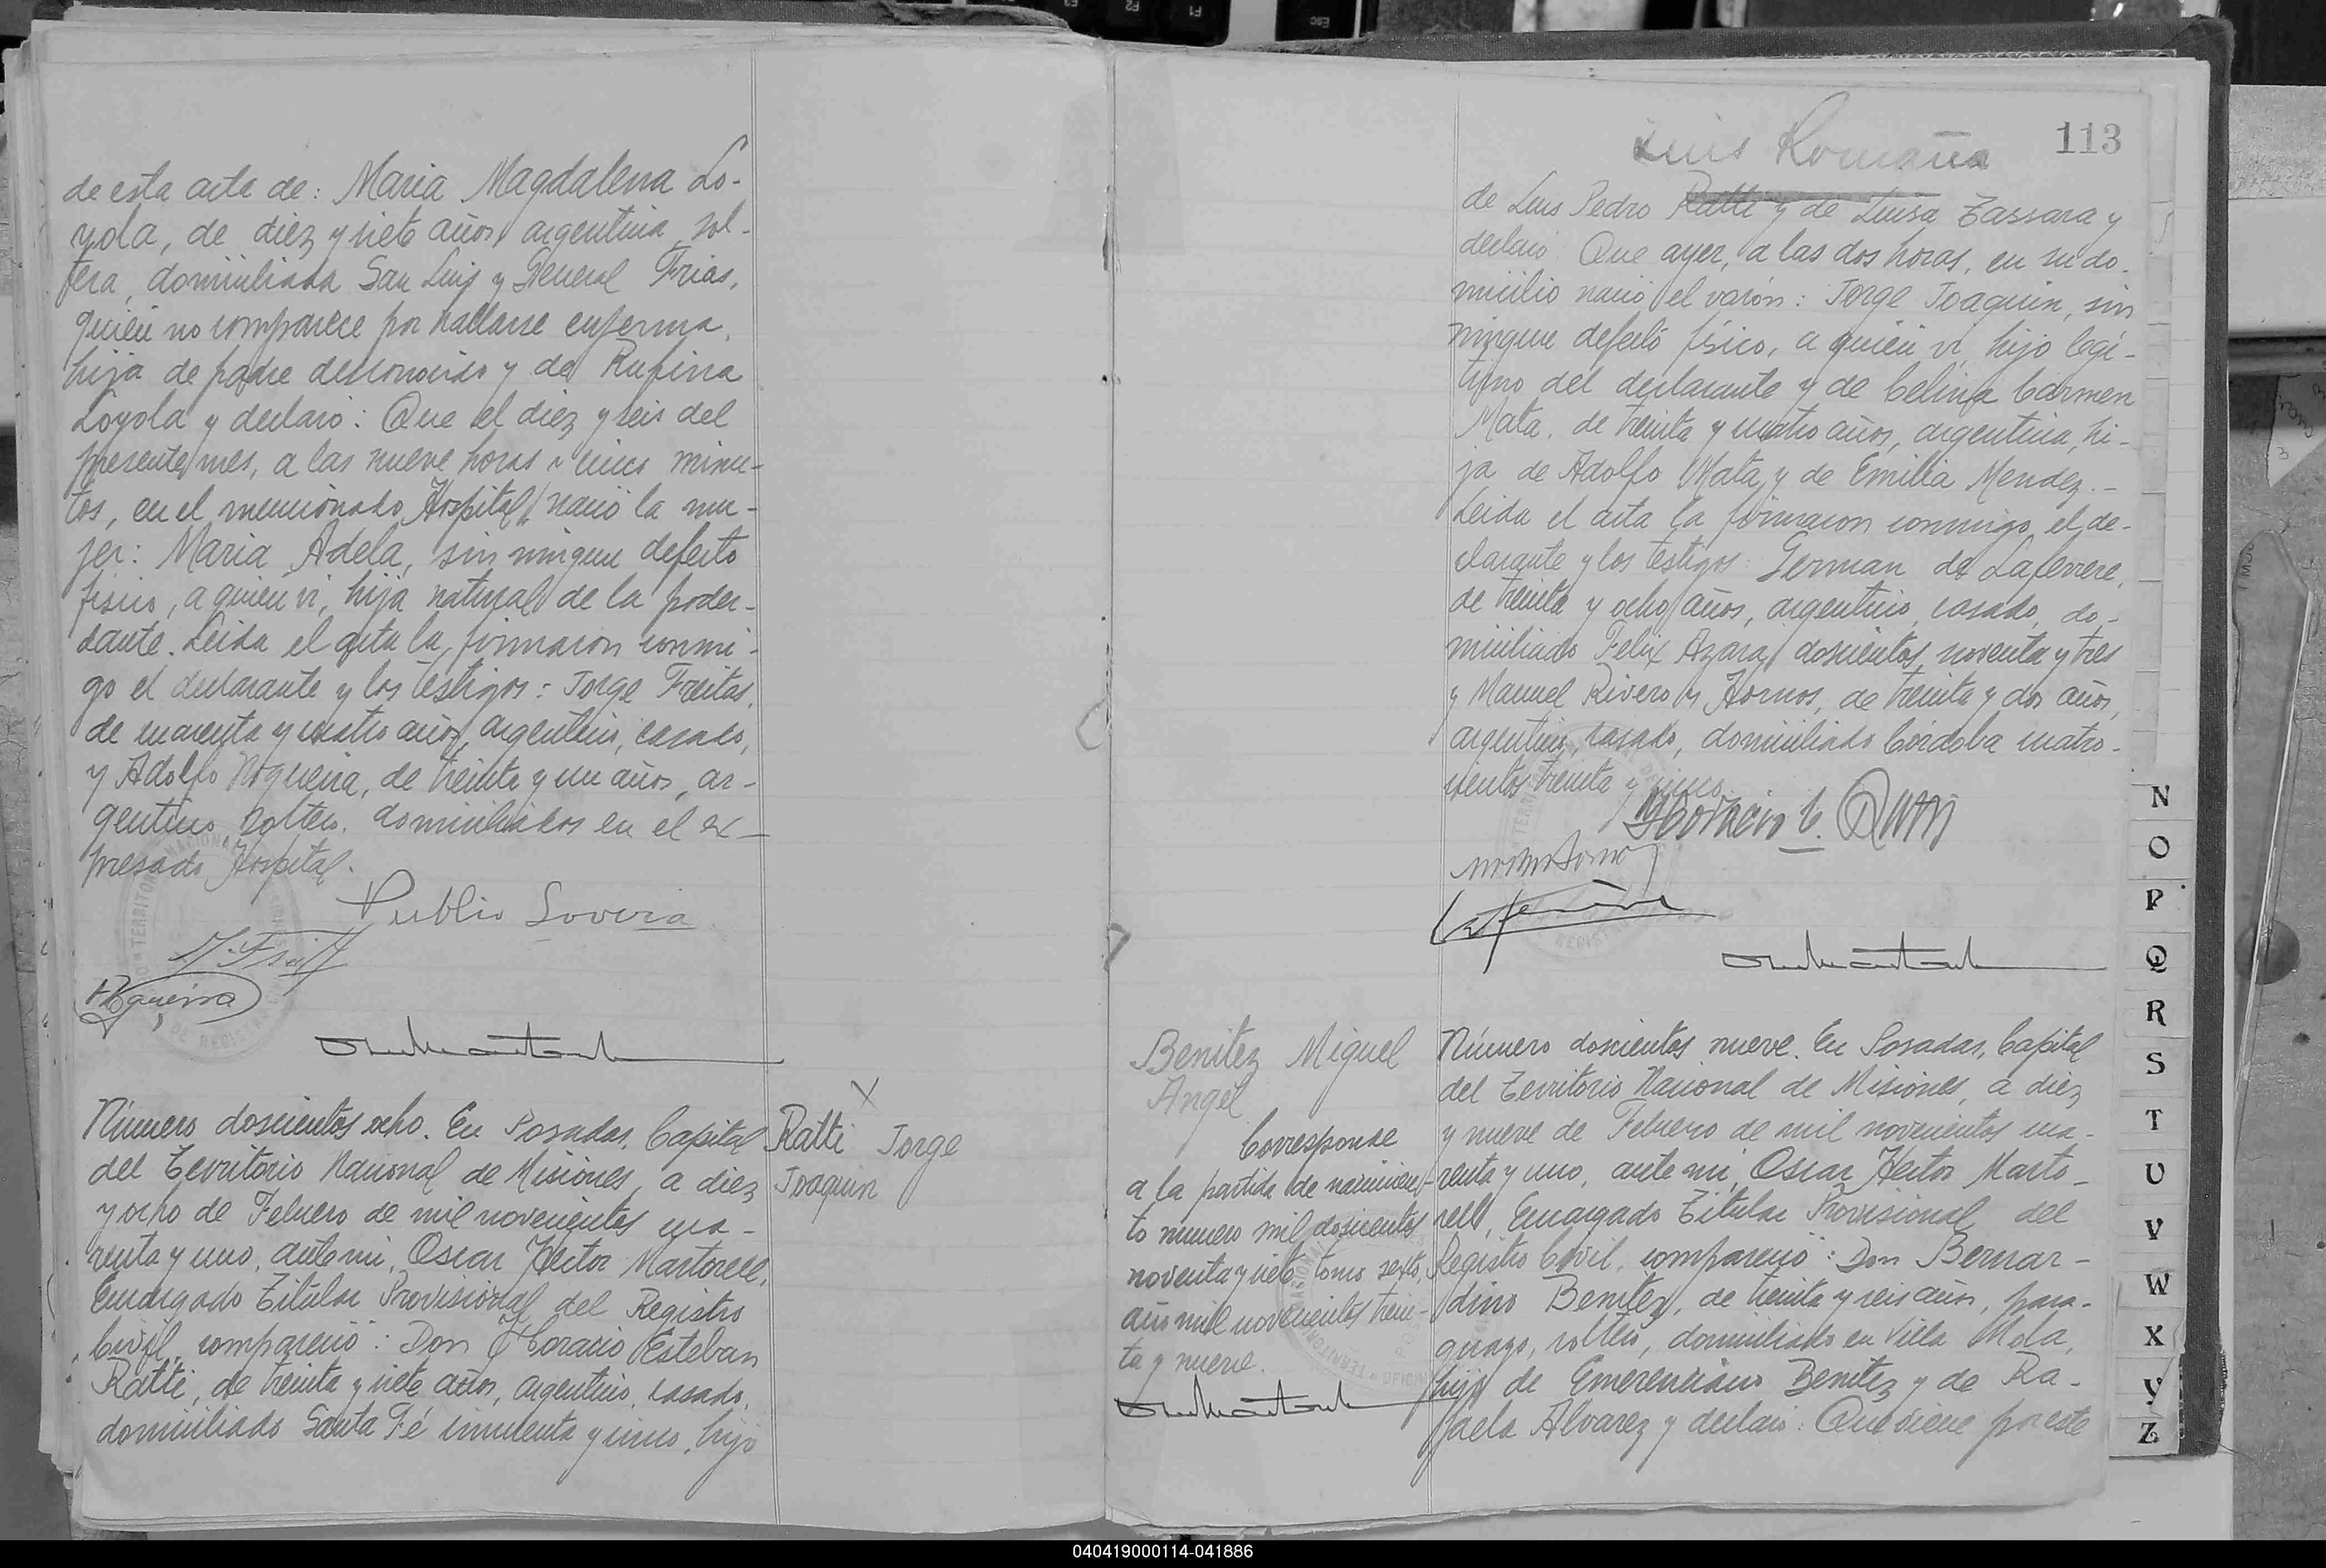 de esta acta de: Maria Magdalena Lo-
yola, de diez y siete años, argentina, sol-
tera, domiciliada San Luis y General Frias,
quien no comparece por hallarse enferma,
hija de padre desconocido y de Rufina
Loyola y declaró: Que el diez y seis del
presente mes, a las nueve horas y cinco minu-
tos, en el mencionado Hospital, nació la mu-
jer: Maria Adela, sin ningun defecto
fisico, a quien vi, hija natural de la poder-
dante. Leida el acta la firmaron conmi-
go el declarante y los testigos: Jorge Freitas,
de cuarenta y cuatro años, argentino, casado,
y Adolfo Nogueira, de treinta y un años, ar-
gentino, soltero, domiciliados en el ex-
presado Hospital.
Publio Lovera
Número doscientos ocho. En Posadas, Capital
del Territorio Nacional de Misiones, a diez
y ocho de Febrero de mil novecientos cua-
renta y uno, ante mi, Oscar Hector Martorell,
Encargado Titular Provisional del Registro
Civil, compareció: Don Horacio Esteban
Ratti, de treinta y siete años, argentino, casado,
domiciliado Santa Fé cincuenta y cinco, hijo
X
Ratti Jorge
Joaquin
113
Luis Romana
de Luis Pedro Ratti y de Luisa Tassara y
declaró: Que ayer, a las dos horas, en su do-
micilio nació el varón: Jorge Joaquin, sin
ningun defecto fisico, a quien vi, hijo legi-
timo del declarante y de Celina Carmen
Mata, de treinta y cuatro años, argentina, hi-
ja de Adolfo Mata y de Emilia Mendez.-
Leida el acta la firmaron conmigo, el de-
clarante y los testigos: German de Laferrere,
de treinta y ocho años, argentino, casado, do-
miciliado Felix Azara, doscientos noventa y tres
y Manuel Rivero y Hornos, de treinta y dos años,
argentino, casado, domiciliado Córdoba cuatro-
cientos treinta y cinco.
Horacio E. Ratti
Laferrere
Benitez Miguel
Angel
Corresponde
a la partida de nacimien-
to numero mil doscientos
noventa y siete, tomo sexto,
año mil novecientos trein-
ta y nueve.
Número doscientos nueve. En Posadas, Capital
del Territorio Nacional de Misiones, a diez
y nueve de Febrero de mil novecientos cua-
renta y uno, ante mi, Oscar Hector Marto-
rell, Encargado Titular Provisional del
Registro Civil, compareció: Don Bernar-
dino Benitez, de treinta y seis años, para-
guayo, soltero, domiciliado en Villa Mola,
hijo de Emerenciano Benitez y de Ra-
faela Alvarez y declaró: Que viene por este
N
O
P
Q
R
S
T
U
V
W
X
Y
Z
040419000114-041886